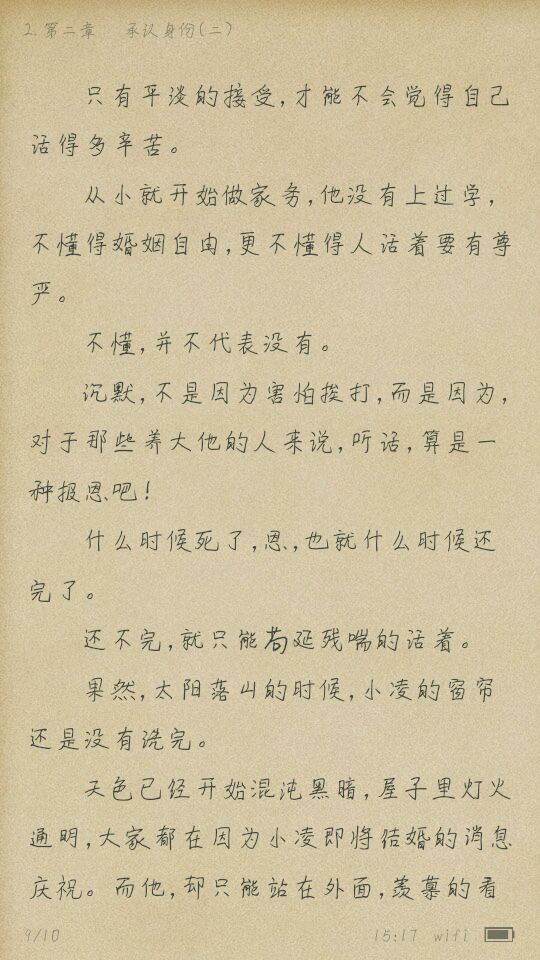 2.第二章 承认身份(二)
只有平淡的接受,才能不会觉得自己
活得多辛苦。
从小就开始做家务,他没有上过学,
不懂得婚姻自由,更不懂得人活着要有尊
严。
不懂,并不代表没有。
沉默,不是因为害怕挨打,而是因为,
对于那些养大他的人来说,听话,算是一
种报恩吧!
什么时候死了,恩,也就什么时候还
完了。
还不完,就只能苟延残喘的活着。
果然,太阳落山的时候,小凌的窗帘
还是没有洗完。
天色已经开始混沌黑暗,屋子里灯火
通明,大家都在因为小凌即将结婚的消息
庆祝。而他,却只能站在外面,羡慕的看
9/10 15:17 wifi